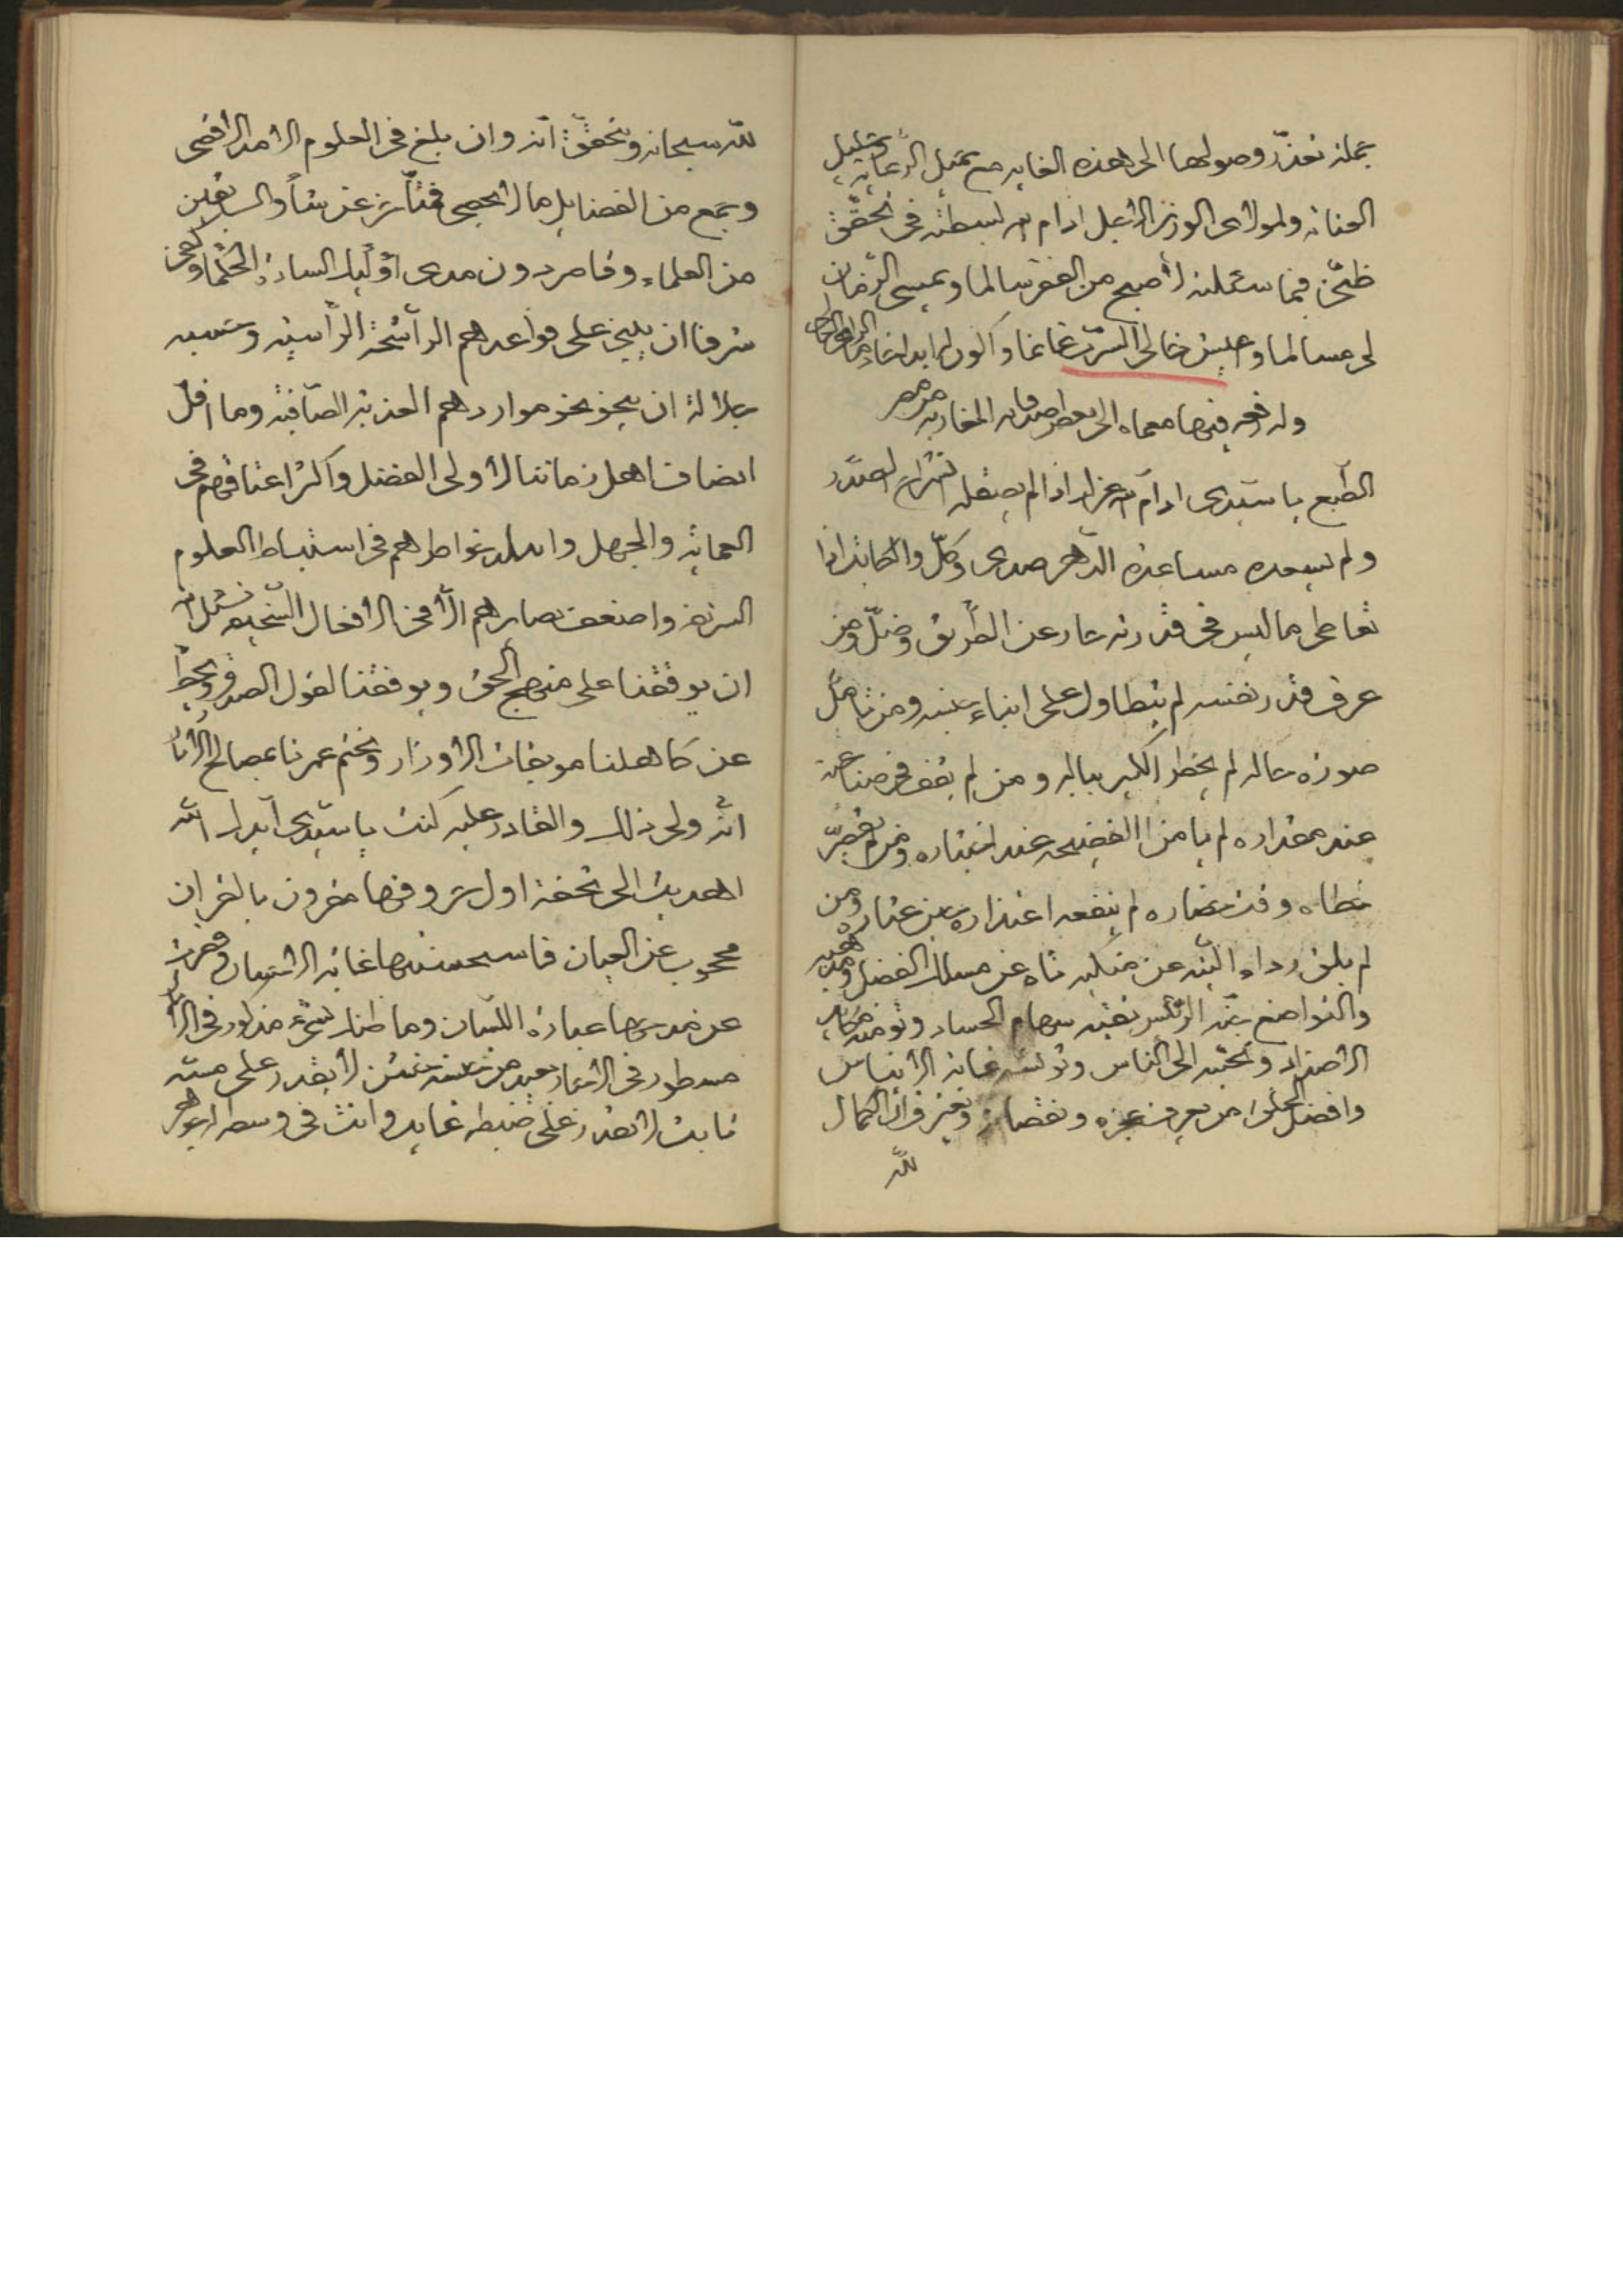 جملة تعذّر وصولها الى هذه الغايه مع جميل الرعايه وجليل
العنايه ولمولاى الوزير الاجل ادام الله بسطته فى تحقّق
ظنّى فيما سئلته لأصبح من الفقر سالما ويمسى الزمان
لى مسالما وجيش خالى السرّ غانما واكون له ابدا خادما
وله رقعه فيها معماه الى بعض اصدقائه المغاربه
الطبع يا سيدى ادام الله عزك اذا لم يصقله انشراح الصدر
ولم يسعده مساعدة الدّهر صدى وكلّ والخاطر اذا
تعاطى ما ليس فى قدرته حار عن الطّريق وضلّ ومن
عرف قدر نفسه لم يتطاول على ابناء جنسه ومن تامّل
صورة حاله لم يخطر الكبر بباله ومن لم يقف فى صناعته
عند مقداره لم يامن الفضيحه عند اختباره ومن لم يقصّر
خطاه وقت حضاره لم ينفعه اعتذاره حين عثاره ومن
لم يلق رداء التيه عن منكبيه تاه عن مسالك الفضل
والتواضع جنّه الرئيس تقيه سهام الحساد وتومنه
الاضداد وتحبّبه الى الناس وتونسه غاية الايناس
وافضل من يعرف عجزه ونقصانه ويعترف ان الكمال
لله
لله سبحانه ويتحقّق انّه وان بلغ فى العلوم الامد الاقصى
وجمع من الفضايل ما لا يحصى متأخّر عن شأو السابقين
من العلماء وقاصر دون مدى اولئك السادة الحكما وكفى
شرفا ان يبنى على قواعدهم الرّاسخة الرّاسيه وحسبه
جلالة ان ينحو نحو مواردهم العذبة الصّافية وما اقلّ
انصاف اهل زماننا لأولى الفضل واكثر اعتسافهم فى
العماية والجهل خواطرهم فى استنباط العلوم
الشريفه واضعف بصايرهم الّا فى الافعال السّخيفه نسئل الله
ان يوقفنا على منهج الحق ويوفقنا لقول الصدق ويحطّ
عن كاهلنا موبقات الاوزار ويختم عمرنا بمصالح الاثار
انّه ولى ذلك والقادر عليه كنت يا سيّدى ايدك الله
اهديت الى تحفة اول حروفها مقرون بالقران
محجوب عن العيان فاستحسنتها غاية الاستحسان وقصرت
عن مدحها عبارة اللّسان وما ظنك بشىء مذكور فى
مسطور فى الاخبار بعيد من جنسه حسن لا يقدر على مسّه
ثابت لا تقدر على ضبطه غايب وانت فى وسطه